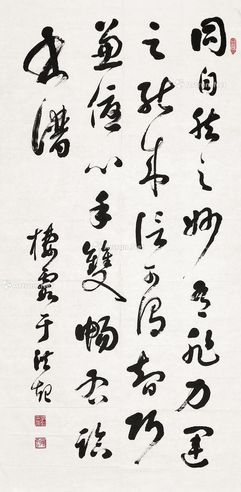 同自然之妙有非力運
之能成信可謂智巧
兼優心手雙暢 臨
書譜
棲霞于